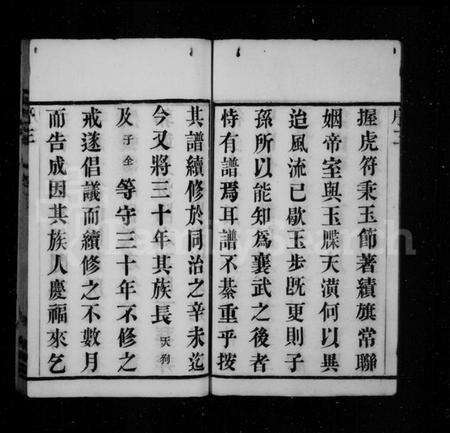 握虎符秉玉節著績旗常聯
姻帝室與玉牒天潢何以異
迨風流已歇玉步既更則子
孫所以能知為襄武之後者
恃有譜焉耳譜不綦重乎援
其譜續修於同治之辛未迄
今又將三十年其族長天狗
及子全等守三十年不修之
戒遂倡議而續修之不數月
而告成因其族人慶福來乞